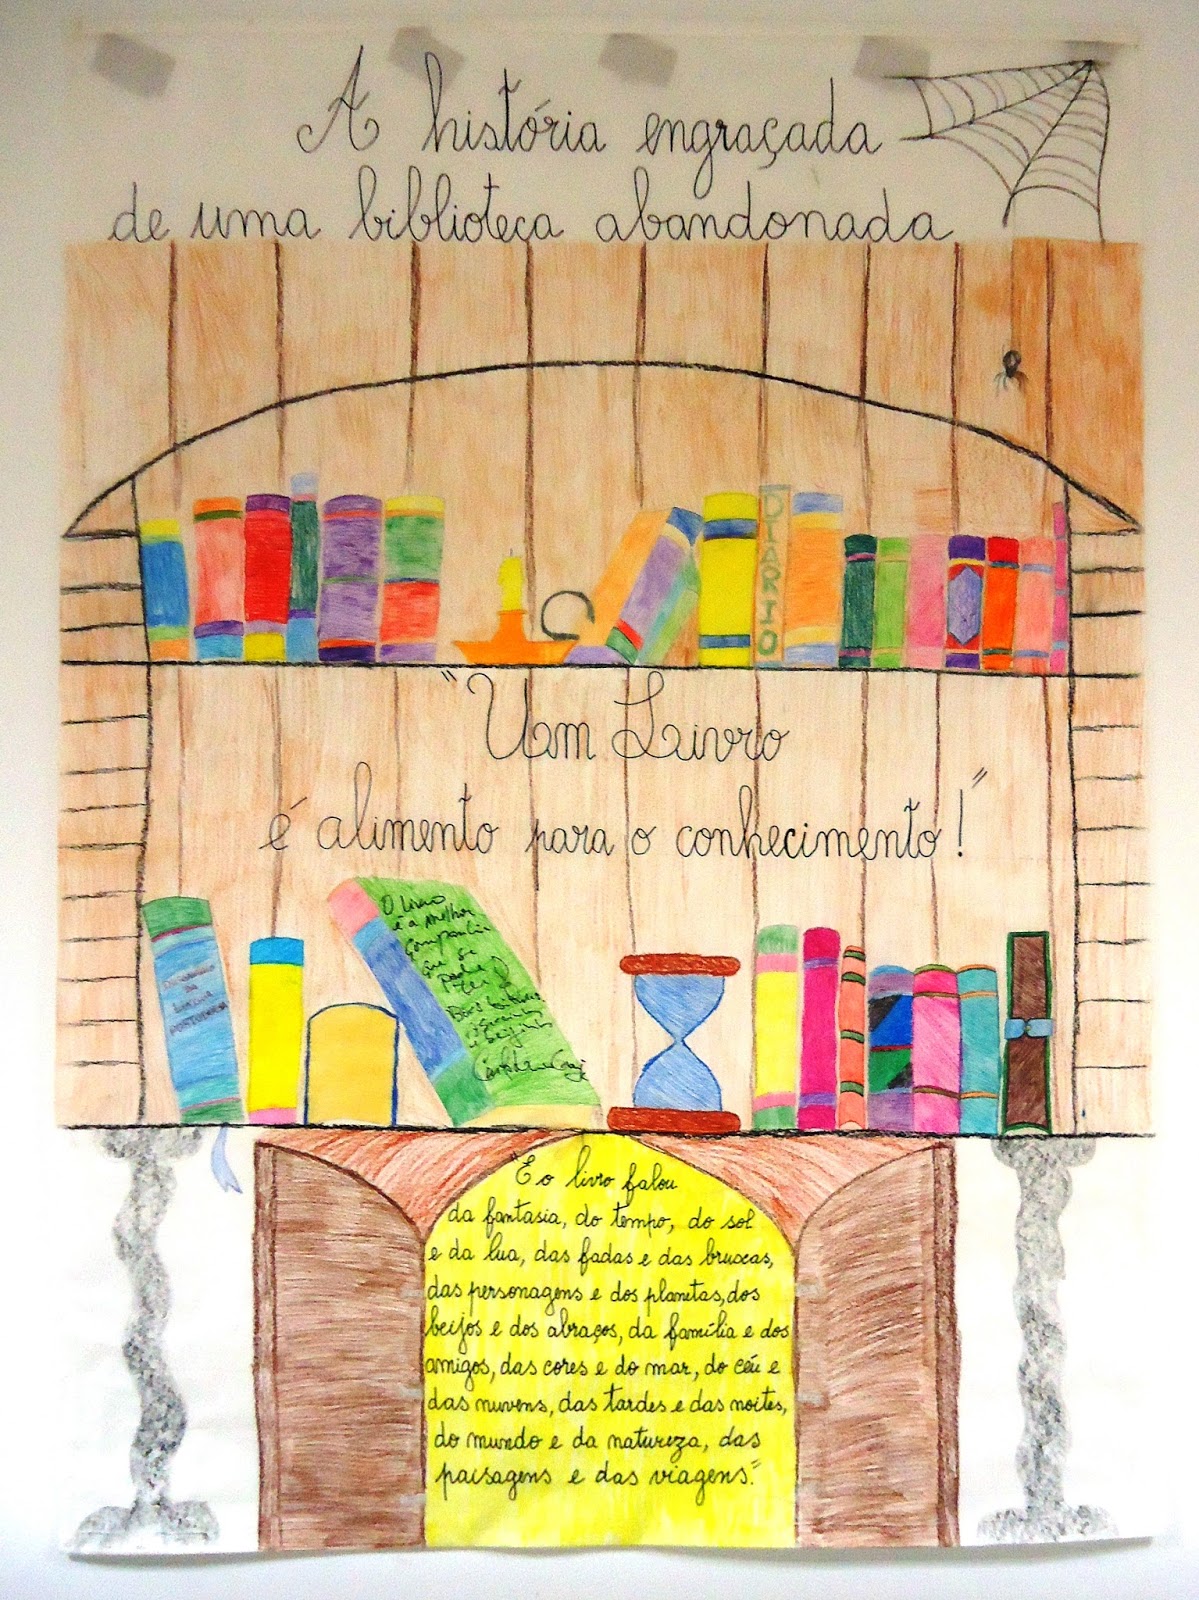 A história engraçada
de uma biblioteca abandonada
DIARIO
"Um Livro
é alimento para o conhecimento!"
DICIONÁRIO
DA
LÍNGUA
PORTUGUESA
O livro
é a melhor
companhia
que se
pode
ter!
Boas leituras
e beijinhos
"E o livro falou
da fantasia, do tempo, do sol
e da lua, das fadas e das bruxas,
das personagens e dos planetas, dos
beijos e dos abraços, da família e dos
amigos, das cores e do mar, do céu e
das nuvens, das tardes e das noites,
do mundo e da natureza, das
paisagens e das viagens."